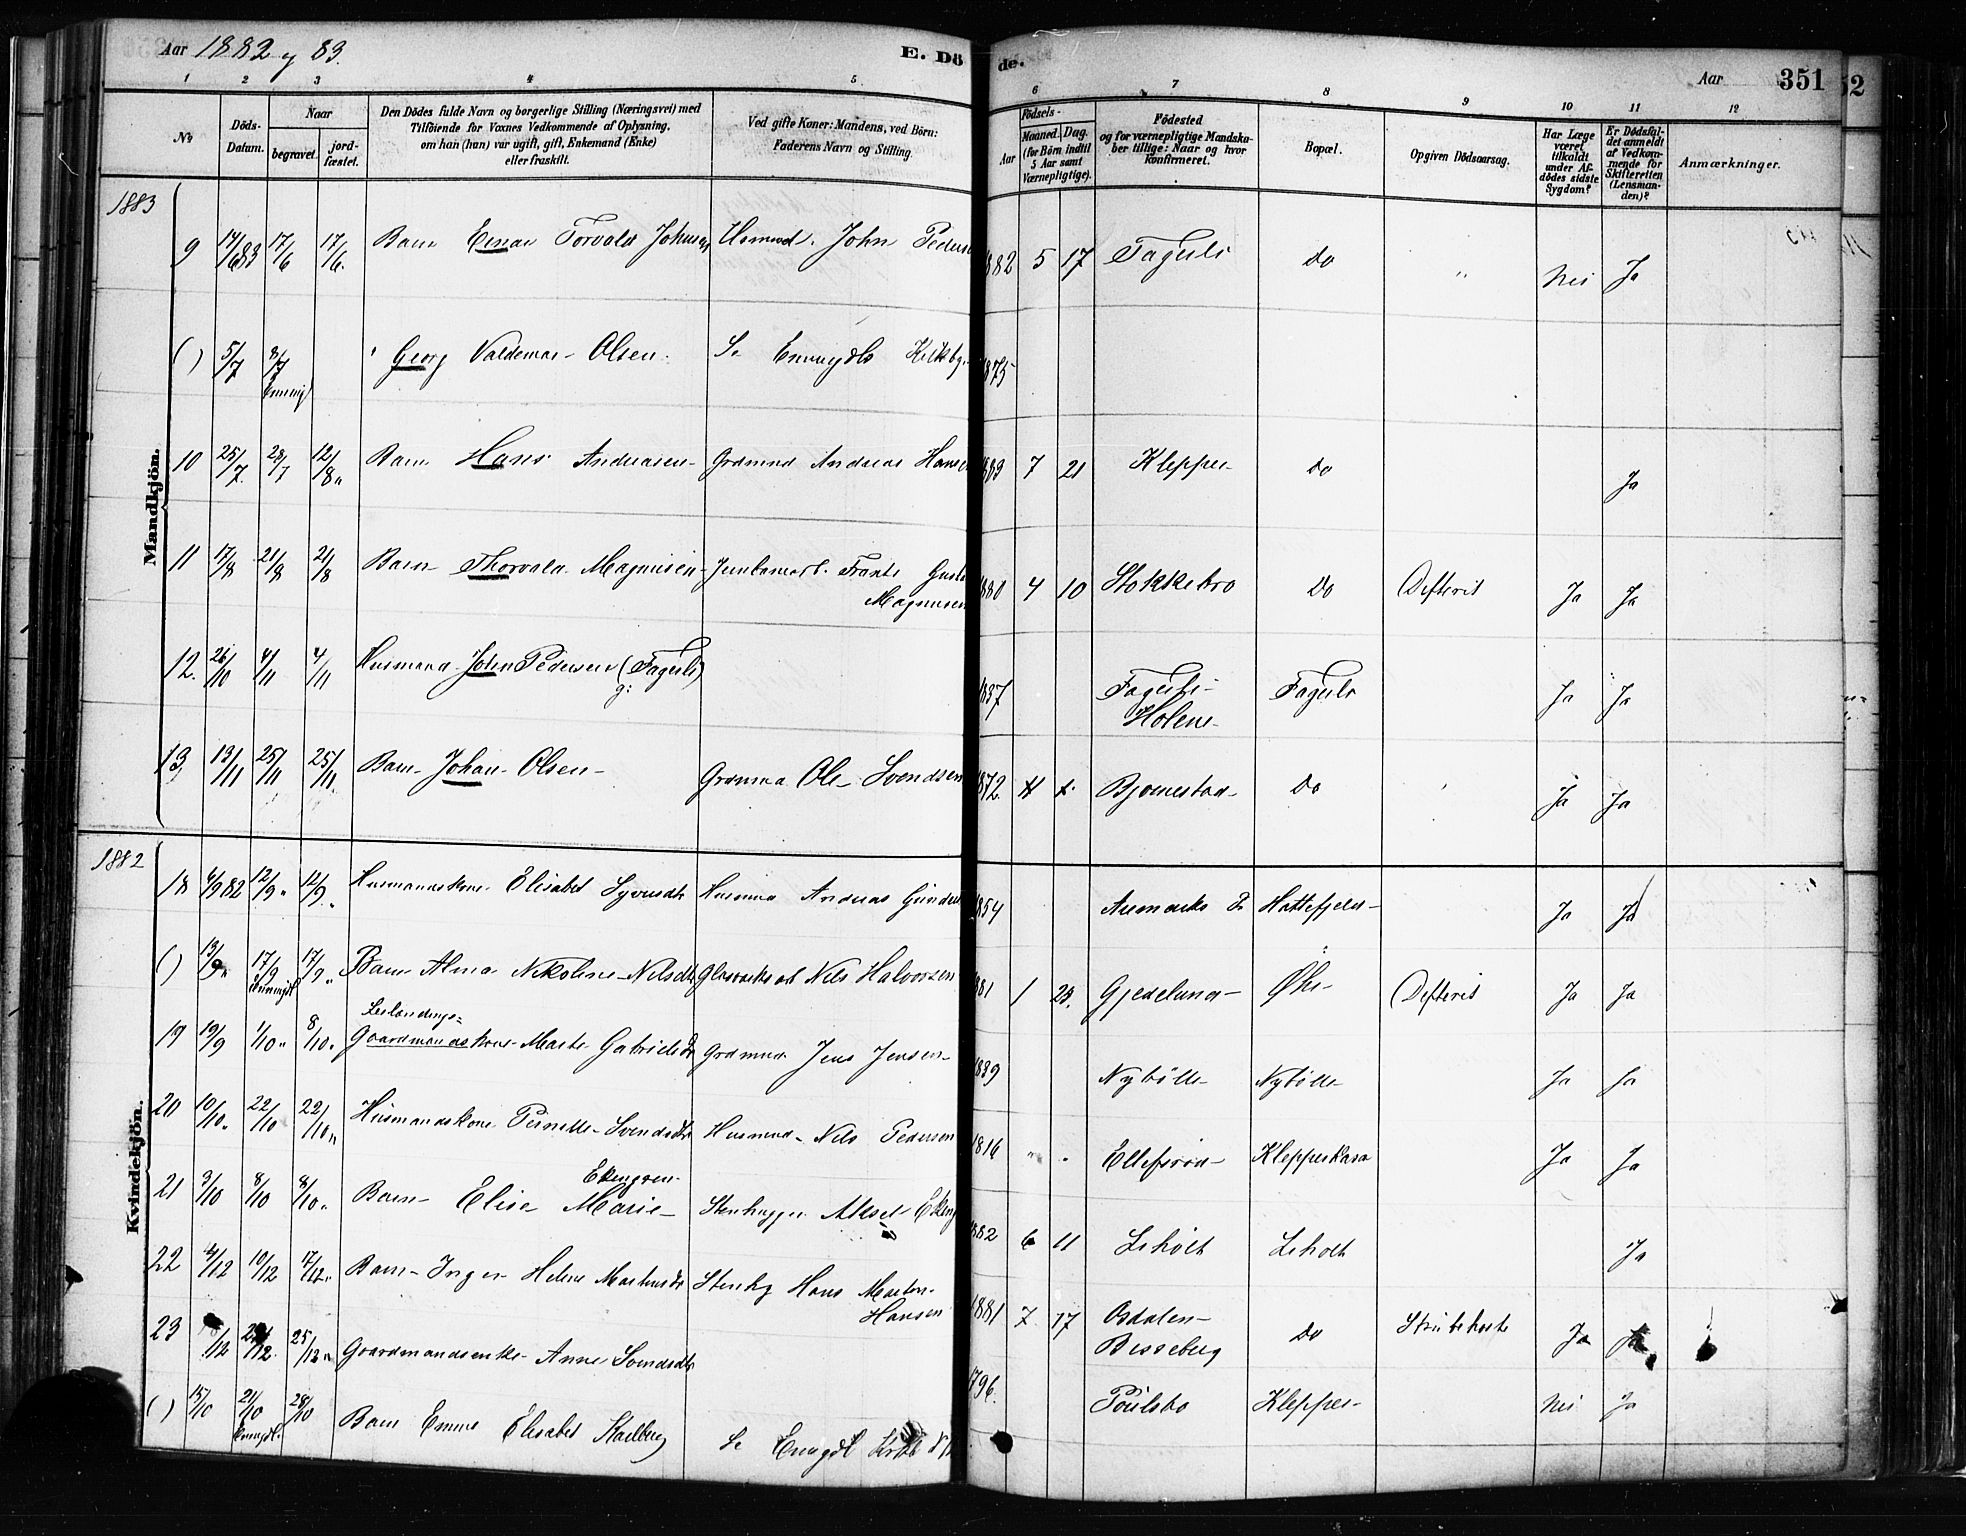 Aar 1882 og 83.
E. Döde.
Aar 351
1 2 3 4 5 6 7 8 9 10 11 12
No
Döds-Datum.
Naar
begravet.
jordfæstet.
Den Dödes fulde Navn og borgerlige Stilling (Næringsvei) med
Tilföiende for Voxnes Vedkommende af Oplysning,
om han (hun) var ugift, gift, Enkemand (Enke)
eller fraskilt.
Ved gifte Koner: Mandens, ved Börn:
Faderens Navn og Stilling.
Födsels-
Aar
Maaned. Dag.
(for Börn indtil
5 Aar samt
Værnepligtige).
Födested
og for værnepligtige Mandska-
ber tillige: Naar og hvor
konfirmeret.
Bopæl.
Opgiven Dödsaarsag.
Har Læge
været
tilkaldt
under Af-
dödes sidste
Sygdom?
Er Dödsfal-
det anmeldt
af Vedkom-
mende for
Skifteretten
(Lensman-
den)?
Anmærkninger.
1883
Mandkjön.
9 14/6 83 17/6 17/6. Barn Einar Torvald Johnsen Husmd. John Peders 882 5 17 Fagerli Do " Nei Ja
( ) 5/7 8/7 Georg Valdemar Olsen. Se Enningdls 1875
10 25/7 28/7 12/8 Barn Hans Andreasen Grdmnd Andreas Hanse 883 7 21 Klepper Do Ja
11 17/8 21/8 21/8 Barn Thorvald Magnusen Frants Gust
Magnusen 880 4 10 Stokkebro Do Difterit Ja Ja
12. 26/10 4/11 4/11 Husmand John Pedersen (Fagerli)
g: 1837 Fagerli-
Holene Fagerli Ja Ja
13 13/11 25/11 25/11 Barn Johan Olsen Grdmnd Ole Svendsen 1872 Bjørnestad Do Ja Ja
1882
Kvindekjön.
18 4/9 82 12/9 12/9 Husmandskone Elisabet Syversdtr Husmnd Andreas Gunder 1854 Aremarks Hattefjeld Ja Ja
( ) 13/9 17/9 17/9 Barn Alma Nikoline Nilsdtr Nils Halvorsen 881 1 23. Gjedelund Øhr Difterit Ja Ja
19 19/9 1/10 8/10 Gaardmandskone Marte Gabrielsdtr Grdmnd Jens Jensen 1839 Nybølle Nybølle Ja Ja
20 10/10 22/10 22/10 Husmandskone Pernille Svendsdtr Husmnd Nils Pedersen 1816 " " Ellefsrød Klepperkasa Ja Ja
21 3/10 8/10 8/10 Barn Elise Marie Ekengren Stenhugger Aksel Ekeng 882 6 11 Liholt Liholt Ja
22 4/12 10/12 17/12 Barn Inger Helene Martinsdtr Stenhg Hans Martin
Hansen 1881 7 17 Osdalen
Bisseberg Do Strubehoste Ja Ja
23 /12 /12 25/12 Gaardmandsenke Anne Svendsdtr 1796. Poulsbo Klepper Nei Ja
( ) 15/10 21/10 28/10 Barn Emma Elisabet Stalberg Se Enngdl